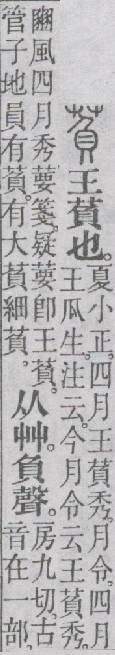 萯王萯也。
夏小正。四月王萯秀。月令。四月
王瓜生。注云。今月令云王萯秀。
豳風四月秀葽。箋疑葽卽王萯。
管子地員有萯。有大萯細萯。
从艸。負聲。
房九切。古
音在一部。